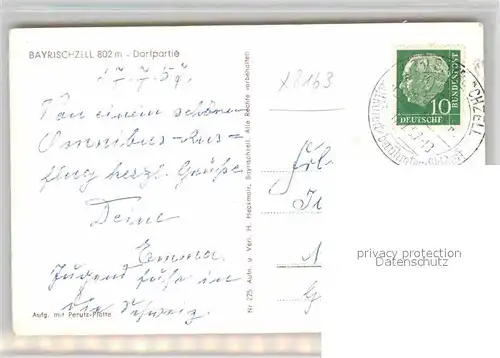 BAYRISCHZELL 802 m - Dorfpartie
17.7.57.
Von einem schönen
Omnibus-Aus=
flug herzl. Grüße
Deine
Emma.
Jugend fuhr in
die Schweiz.
Aufg. mit Perutz-Platte
Nr 225 Aufn. u. Verl. H. Heckmair, Bayrischzell. Alle Rechte vorbehalten
X8163
10
DEUTSCHE
BUNDESPOST
privacy protection
Datenschutz